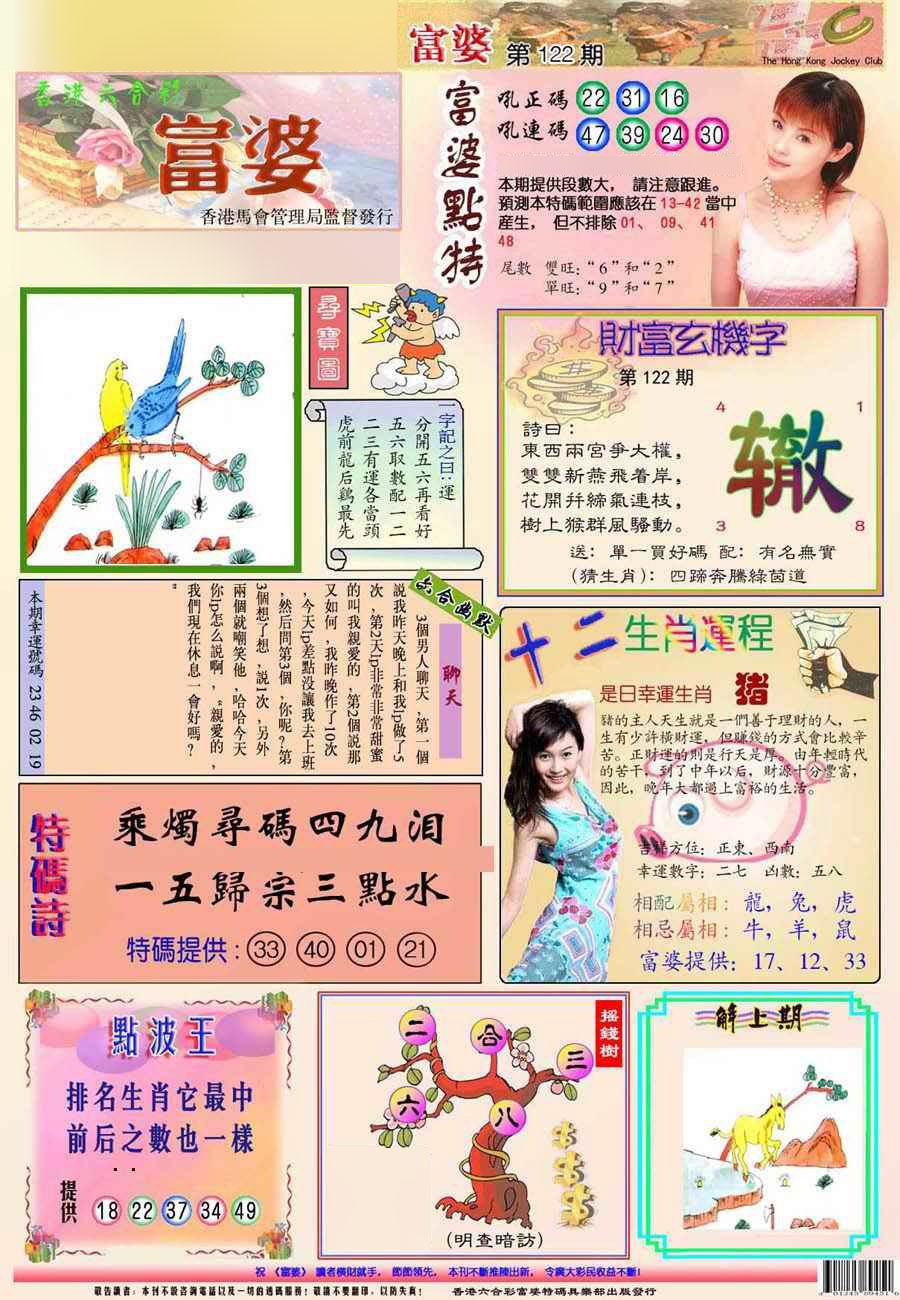 富婆 第122期
The Hong Kong Jockey Club
香港六合彩
富婆
香港馬會管理局監督發行
富婆點特
吼正碼 22 31 16
吼連碼 47 39 24 30
本期提供段數大， 請注意跟進。
預測本特碼範圍應該在 13-42 當中
産生， 但不排除 01、 09、 41
48
尾數 雙旺:“6”和“2”
單旺:“9”和“7”
尋寶圖
一字記之曰::運
分開五六再看好
五六取數配一二
二三有運各當頭
虎前龍后鷄最先
財富玄機字
第122期
詩曰:
東西兩宮爭大權，
雙雙新燕飛着岸，
花開幷締氣連枝，
樹上猴群風騷動。
4 1
辙
3 8
送: 單一買好碼 配: 有名無實
(猜生肖): 四蹄奔騰綠茵道
六合幽默
聊天
3個男人聊天,第一個
説我昨天晚上和我lp做了5
次,第2天lp非常非常甜蜜
的叫我親愛的,第2個説那
又如何,我昨晚作了10次
,今天lp差點没讓我去上班
,然后問第3個,你呢?第
3個想了想,説1次,另外
兩個就嘲笑他,哈哈今天
你lp怎么説啊,“親愛的,
我們現在休息一會好嗎?
”
本期幸運號碼 23 46 02 19
十二生肖運程
是日幸運生肖 猪
豬的主人天生就是一們善于理財的人，一
生有少許橫財運，但賺錢的方式會比較辛
苦。正財運的則是行天是厚。由年輕時代
的苦干，到了中年以后，財源十分豐富，
因此，晚年大都過上富裕的生活。
吉祥方位: 正東、西南
幸運數字: 二七 凶數: 五八
相配屬相: 龍，兔，虎
相忌屬相: 牛，羊，鼠
富婆提供: 17、12、33
特碼詩
乘燭尋碼四九泪
一五歸宗三點水
特碼提供: 33 40 01 21
點波王
排名生肖它最中
前后之數也一樣
提供 18 22 37 34 49
摇錢樹
二 合 三
六 八
(明查暗訪)
解上期
祝《富婆》讀者橫財就手， 節節領先， 本刊不斷推陳出新， 令廣大彩民收益不斷!
敬告讀者: 本刊不設咨詢電話以及一切的透碼服務! 敬請不要翻印，以防失真! 香港六合彩富婆特碼具樂部出版發行